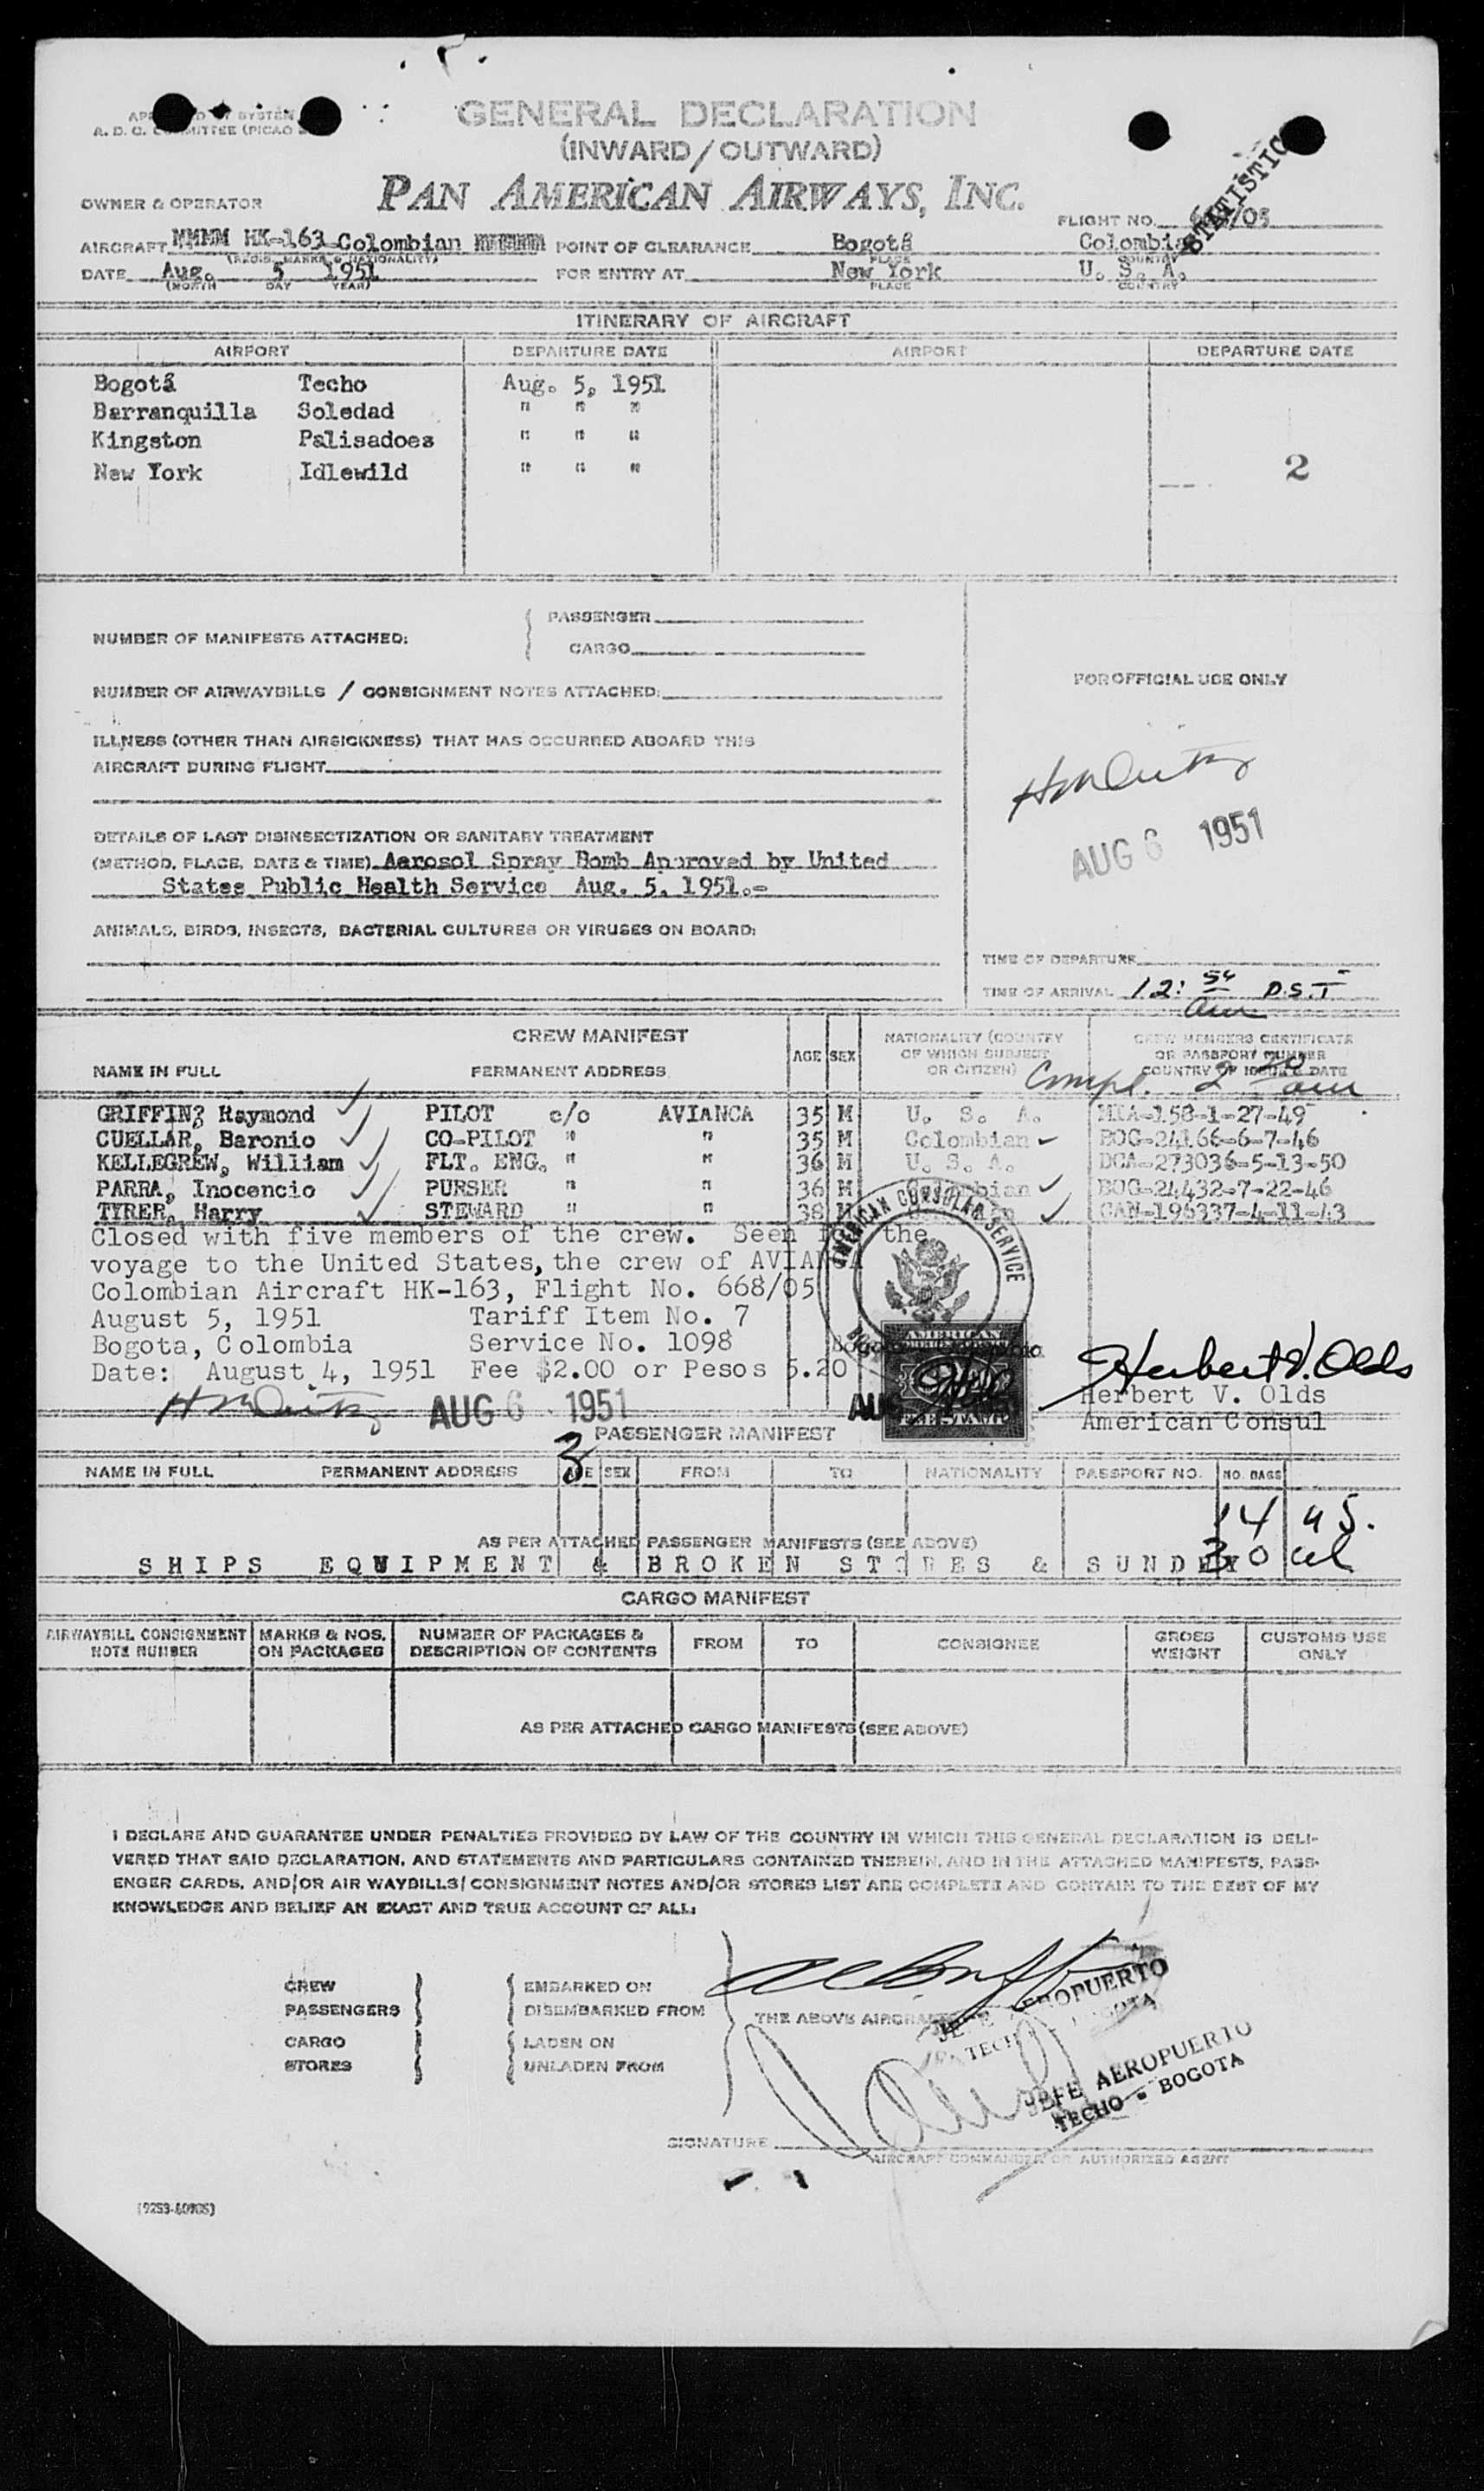 A. D. C. COMMITTEE (PICAO
GENERAL DECLARATION
(INWARD/OUTWARD)
STATISTIC
OWNER & OPERATOR PAN AMERICAN AIRWAYS, INC. FLIGHT NO. /05
AIRCRAFT HK-163 Colombian POINT OF CLEARANCE Bogotá Colombia
(REGIS. MARKS & NATIONALITY) PLACE COUNTRY
DATE Aug. 5 1951 FOR ENTRY AT New York U. S. A.
(MONTH DAY YEAR) PLACE COUNTRY
ITINERARY OF AIRCRAFT
AIRPORT DEPARTURE DATE AIRPORT DEPARTURE DATE
Bogotá Techo Aug. 5, 1951
Barranquilla Soledad " " "
Kingston Palisadoes " " "
New York Idlewild " " "
2
NUMBER OF MANIFESTS ATTACHED: PASSENGER
CARGO
NUMBER OF AIRWAYBILLS / CONSIGNMENT NOTES ATTACHED:
FOR OFFICIAL USE ONLY
ILLNESS (OTHER THAN AIRSICKNESS) THAT HAS OCCURRED ABOARD THIS
AIRCRAFT DURING FLIGHT
AUG 6 1951
DETAILS OF LAST DISINSECTIZATION OR SANITARY TREATMENT
(METHOD, PLACE, DATE & TIME) Aerosol Spray Bomb Approved by United
States Public Health Service Aug. 5, 1951.-
ANIMALS, BIRDS, INSECTS, BACTERIAL CULTURES OR VIRUSES ON BOARD:
TIME OF DEPARTURE
TIME OF ARRIVAL 12:54 am D.S.T
CREW MANIFEST
NAME IN FULL PERMANENT ADDRESS AGE SEX NATIONALITY (COUNTRY OF WHICH SUBJECT OR CITIZEN) CREW MEMBERS CERTIFICATE OR PASSPORT NUMBER COUNTRY OF ISSUE & DATE
Compl. 2 20 am
GRIFFIN, Raymond PILOT c/o AVIANCA 35 M U. S. A. MIA-158-1-27-49
CUELLAR, Baronio CO-PILOT " " 35 M Colombian BOG-24166-6-7-46
KELLEGREW, William FLT. ENG. " " 36 M U. S. A. DCA-273036-5-13-50
PARRA, Inocencio PURSER " " 36 M Colombian BOG-24432-7-22-46
TYRER, Harry STEWARD " " 38 M CAN-196337-4-11-43
Closed with five members of the crew. Seen for the
voyage to the United States, the crew of AVIANCA
Colombian Aircraft HK-163, Flight No. 668/05
August 5, 1951 Tariff Item No. 7
Bogota, Colombia Service No. 1098
Date: August 4, 1951 Fee $2.00 or Pesos 5.20
AMERICAN CONSULAR SERVICE
AMERICAN
FEE STAMP
Herbert V. Olds
Herbert V. Olds
American Consul
AUG 6 1951
AUG
3
PASSENGER MANIFEST
NAME IN FULL PERMANENT ADDRESS AGE SEX FROM TO NATIONALITY PASSPORT NO. NO. BAGS
14 US.
AS PER ATTACHED PASSENGER MANIFESTS (SEE ABOVE)
30 al
SHIPS EQUIPMENT & BROKEN STORES & SUNDRY
CARGO MANIFEST
AIRWAYBILL CONSIGNMENT NOTE NUMBER MARKS & NOS. ON PACKAGES NUMBER OF PACKAGES & DESCRIPTION OF CONTENTS FROM TO CONSIGNEE GROSS WEIGHT CUSTOMS USE ONLY
AS PER ATTACHED CARGO MANIFESTS (SEE ABOVE)
I DECLARE AND GUARANTEE UNDER PENALTIES PROVIDED BY LAW OF THE COUNTRY IN WHICH THIS GENERAL DECLARATION IS DELI-
VERED THAT SAID DECLARATION, AND STATEMENTS AND PARTICULARS CONTAINED THEREIN, AND IN THE ATTACHED MANIFESTS, PASS-
ENGER CARDS, AND/OR AIR WAYBILLS/CONSIGNMENT NOTES AND/OR STORES LIST ARE COMPLETE AND CONTAIN TO THE BEST OF MY
KNOWLEDGE AND BELIEF AN EXACT AND TRUE ACCOUNT OF ALL:
CREW EMBARKED ON
PASSENGERS DISEMBARKED FROM
THE ABOVE AIRCRAFT
CARGO LADEN ON
STORES UNLADEN FROM
JEFE AEROPUERTO
TECHO BOGOTA
JEFE AEROPUERTO
TECHO - BOGOTA
SIGNATURE
AIRCRAFT COMMANDER OR AUTHORIZED AGENT